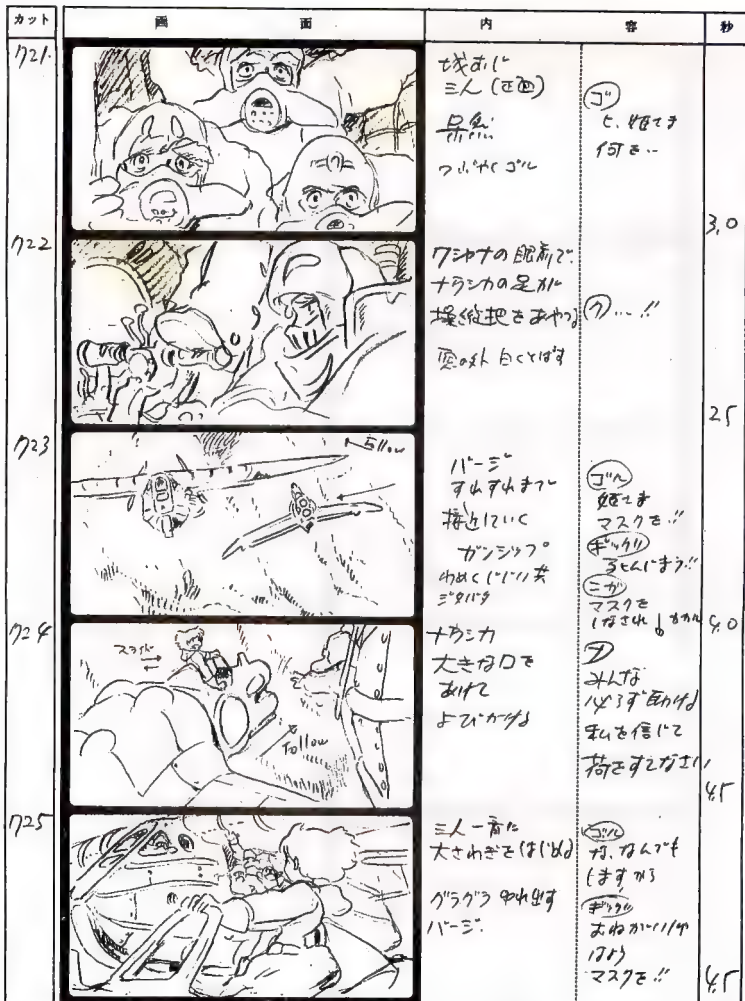 カット
画 面
内 容
秒
721.
三人 (正面)
呆然
つぶやくゴル
ゴ
ひ、姫さま
何を…
3.0
722
クシャナの眼前で
ナウシカの足が
操縦把をあやつる
窓の外 白くとばす
ク …!!
2.5
723
Follow
バージ
すれすれまで
接近していく
ガンシップ
わめくじじい共
ジタバタ
ゴル
姫さま
マスクを!!
ギックリ
死んじまう!!
ニガ
マスクを
しなされ
4.0
724
スライド
Follow
ナウシカ
大きな口を
あけて
よびかける
ナ
みんな
必ず助ける
私を信じて
荷をすてなさい
4.5
725
三人一斉に
大さわぎをはじめる
グラグラ ゆれ出す
バージ.
ゴル
な、なんでも
しますから
ギックリ
おねがいじゃ
はよう
マスクを!!
4.5